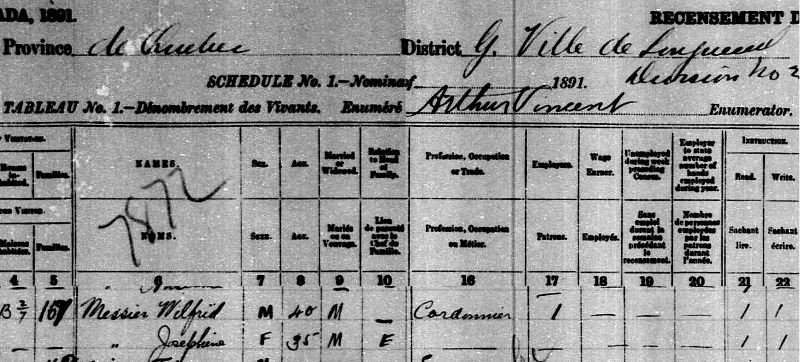 ADA, 1891. RECENSEMENT D
Province de Quebec District G. Ville de Longueuil
SCHEDULE No. 1.—Nominal 1891. Division No 2
TABLEAU No. 1.—Dénombrement des Vivants. Enuméré Arthur Vincent Enumerator.
NAMES. Sex. Age. Married or Widowed. Relation to Head of Family. Profession, Occupation or Trade. Employers. Wage Earner. Unemployed during week preceding Census. Employer to state average number of hands employed during year. INSTRUCTION.
Families. Read. Write.
7872
NOMS. Sexe. Age. Mariés ou en Veuvage. Lien de parenté avec le Chef de Famille. Profession, Occupation ou Métier. Patrons. Employés. Sans emploi durant la semaine précédant le recensement. Nombre de personnes employées par les patrons durant l'année.
Maisons habitées. Familles. Sachant lire. Sachant écrire.
4 5 6 7 8 9 10 16 17 18 19 20 21 22
B 2/7 167 Messier Wilfrid M 40 M — Cordonnier 1 — — — 1 1
— — " Josephine F 35 M E — — — — — 1 1